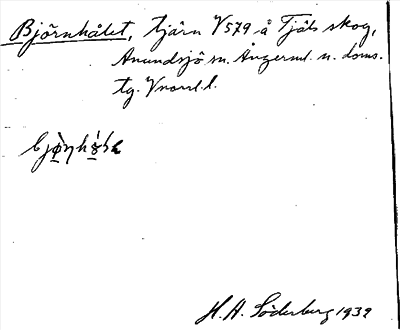 Björnhålet, tjärn V579 å Tjäls skog,
Anundsjö sn. Ångerml. n. doms.
tg. Vnorrl. l.
H. A. Söderberg 1939